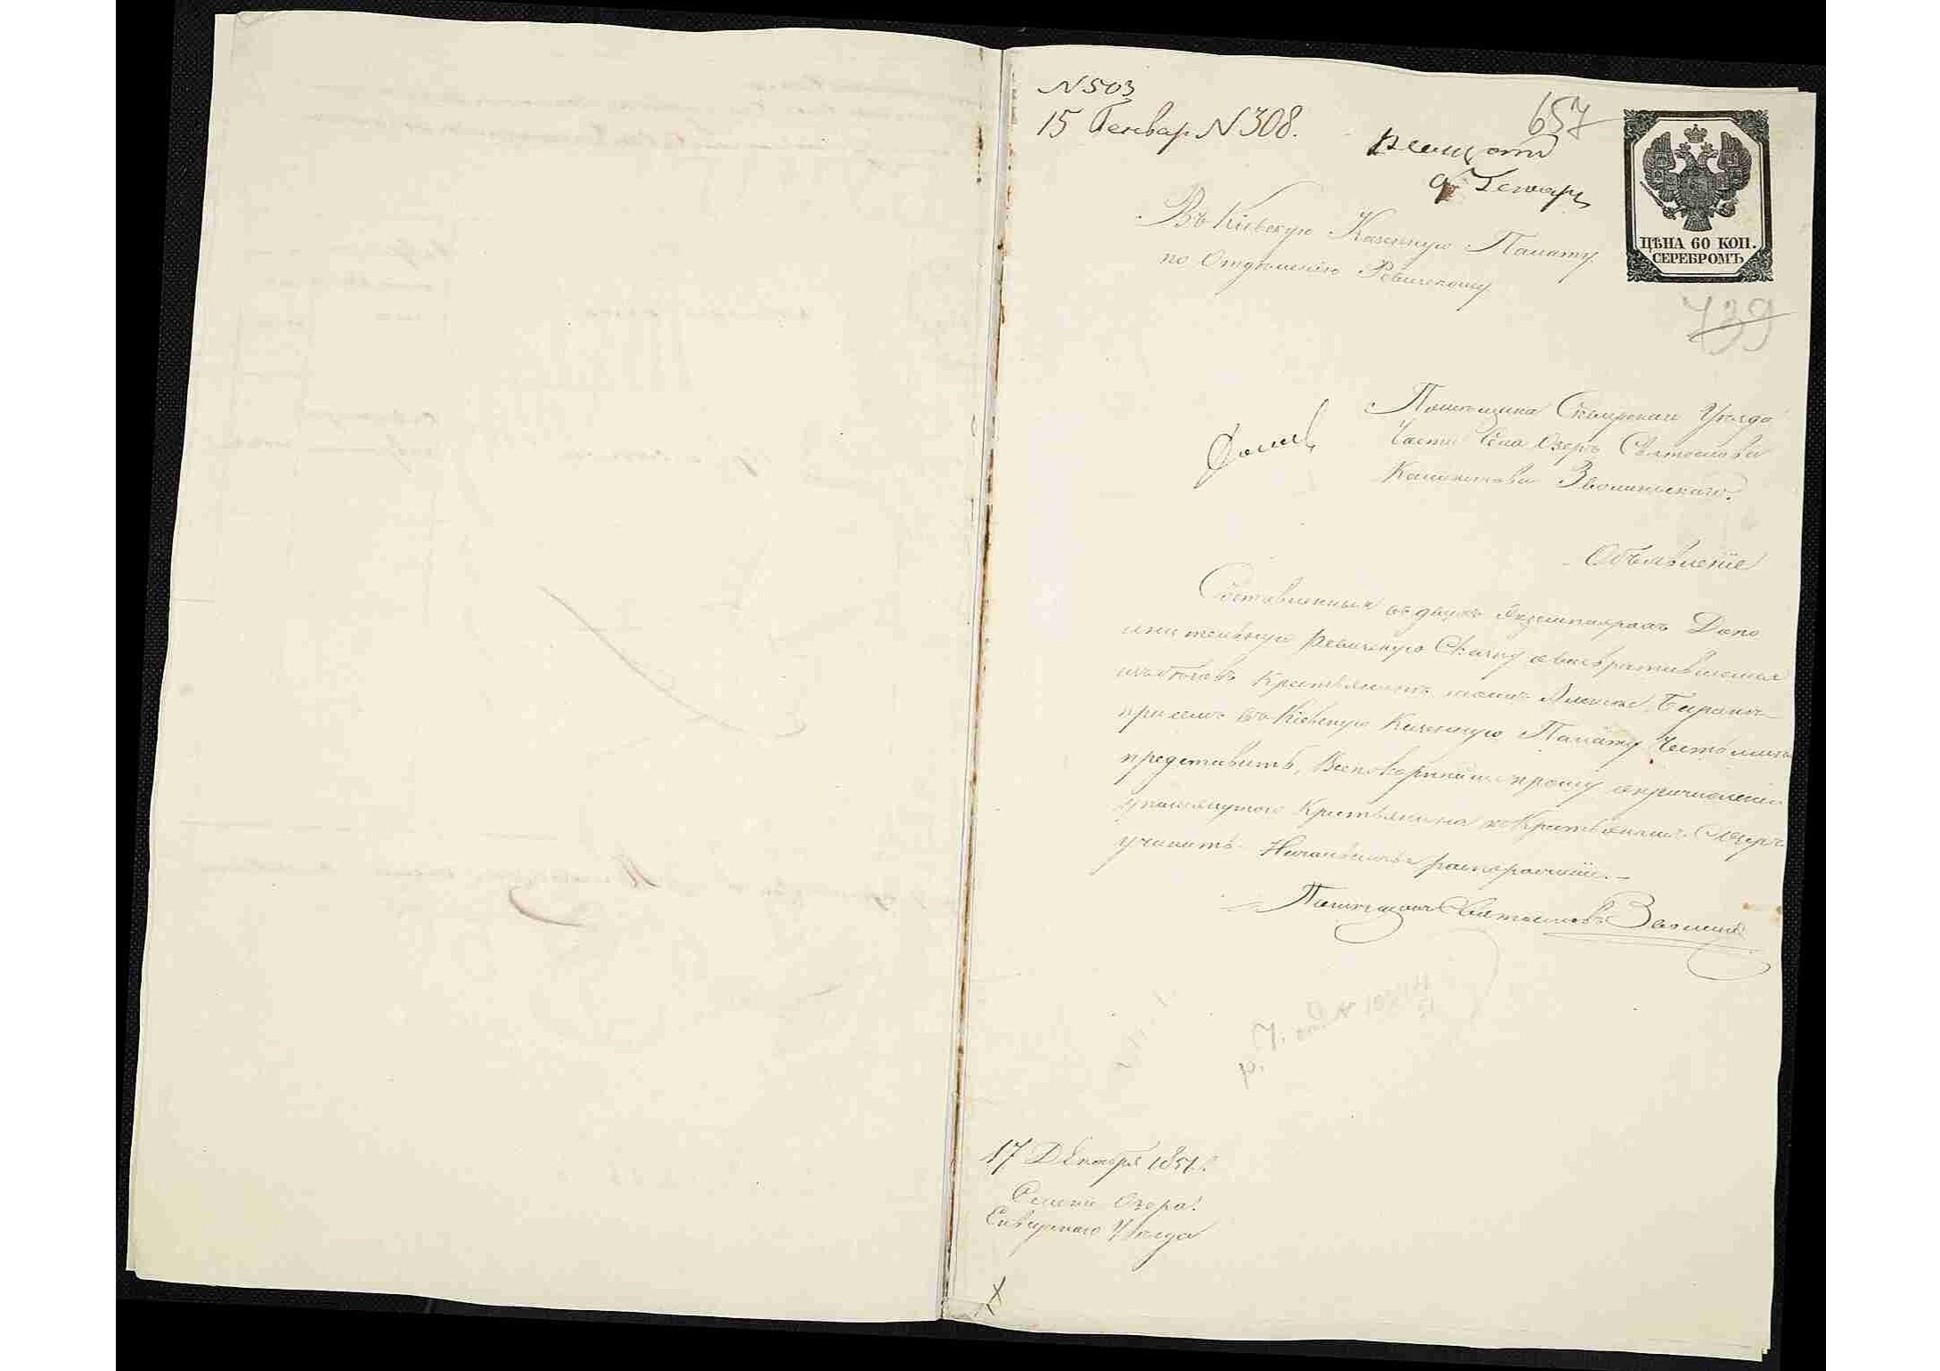 N 503
15 Генвар N 308.
657
9 Генваря
ЦѢНА 60 КОП.
СЕРЕБРОМЪ
739
Въ Кіевскую Казенную Палату
по Отдѣленію Ревизскому
Помѣщика Сквирскаго Уѣзда
Части Села Озеръ Святослава
Зволинскаго.
Объявленіе
Составленныя въ двухъ Экземплярахъ Допо
лнительную ревизскую Сказку о возвратившемся
изъ бѣговъ Крестьянинѣ моемъ Алексѣе
при семъ въ Кіевскую Казенную Палату Честь имѣю
представить, Всепокорнѣйше прошу о причисленіи
упомянутого Крестьянина къ Крестьянамъ С. Озеръ
учинить распоряженіе.-
Помѣщикъ Святославъ Зволинск
17 Декабря 1851 г.
Селеніе Озера.
Сквирскаго Уѣзда